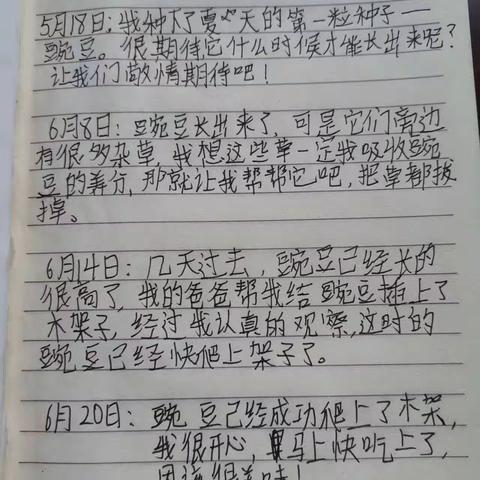 5月18日:我种下了夏天的第一粒种子——
豌豆。很期待它什么时候才能长出来呢?
让我们敞情期待吧!
6月8日:豌豆长出来了,可是它们旁边
有很多杂草,我想这些草一定我吸收豌
豆的养分,那就让我帮帮它吧,把草都拔
掉。
6月14日:几天过去,豌豆已经长的
很高了,我的爸爸帮我给豌豆插上了
木架子,经过我认真的观察,这时的
豌豆已经快爬上架子了。
6月20日:豌豆已经成功爬上了木架,
我很开心,马上快吃上了,